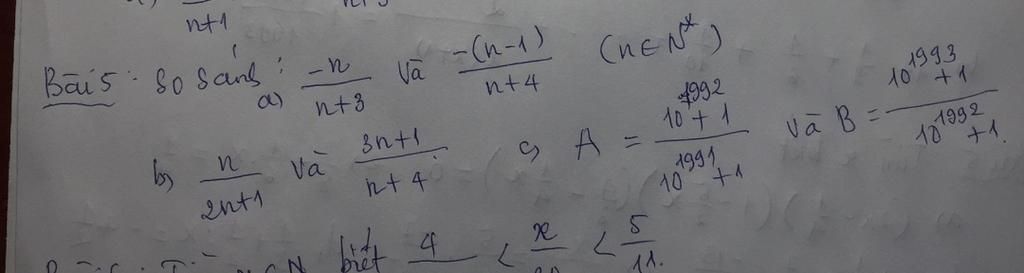 n+1
Bài 5: So sánh: a) -n/(n+3) và -(n-1)/(n+4) (n ∈ N*)
b) n/(2n+1) và (3n+1)/(n+4) c) A = (10^1992 + 1)/(10^1991 + 1) và B = (10^1993 + 1)/(10^1992 + 1).
biết 4 < x < 5/11.